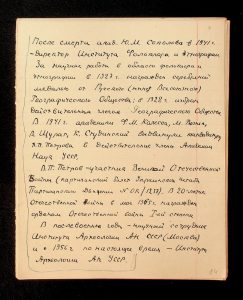 После смерти акад. Ю.М. Соколова в 1941г.
- директор Института Фольклора и Этнографии
За научные работы в области фольклора и
этнографии в 1927г. награжден серебряной
медалью от Русского
Географического Общества; в 1928г. избран
действительным членом Географического Общества
В 1941г. академики Ф.М. Колесса, М. Возняк,
В. Щурат, К. Студинский выдвинули кандидатуру
В.П. Петрова в действительные члены Академии
Наук УССР.
В.П. Петров - участник Великой Отечественной
Войны
В 20-летие
Отечественной Войны в мае 1965г. награжден
орденом Отечественной Войны I-ой степени
В последние годы - научный сотрудник
Института Археологии АН СССР (Москва)
и с 1956г. по настоящее время - Института
Археологии АН УССР.